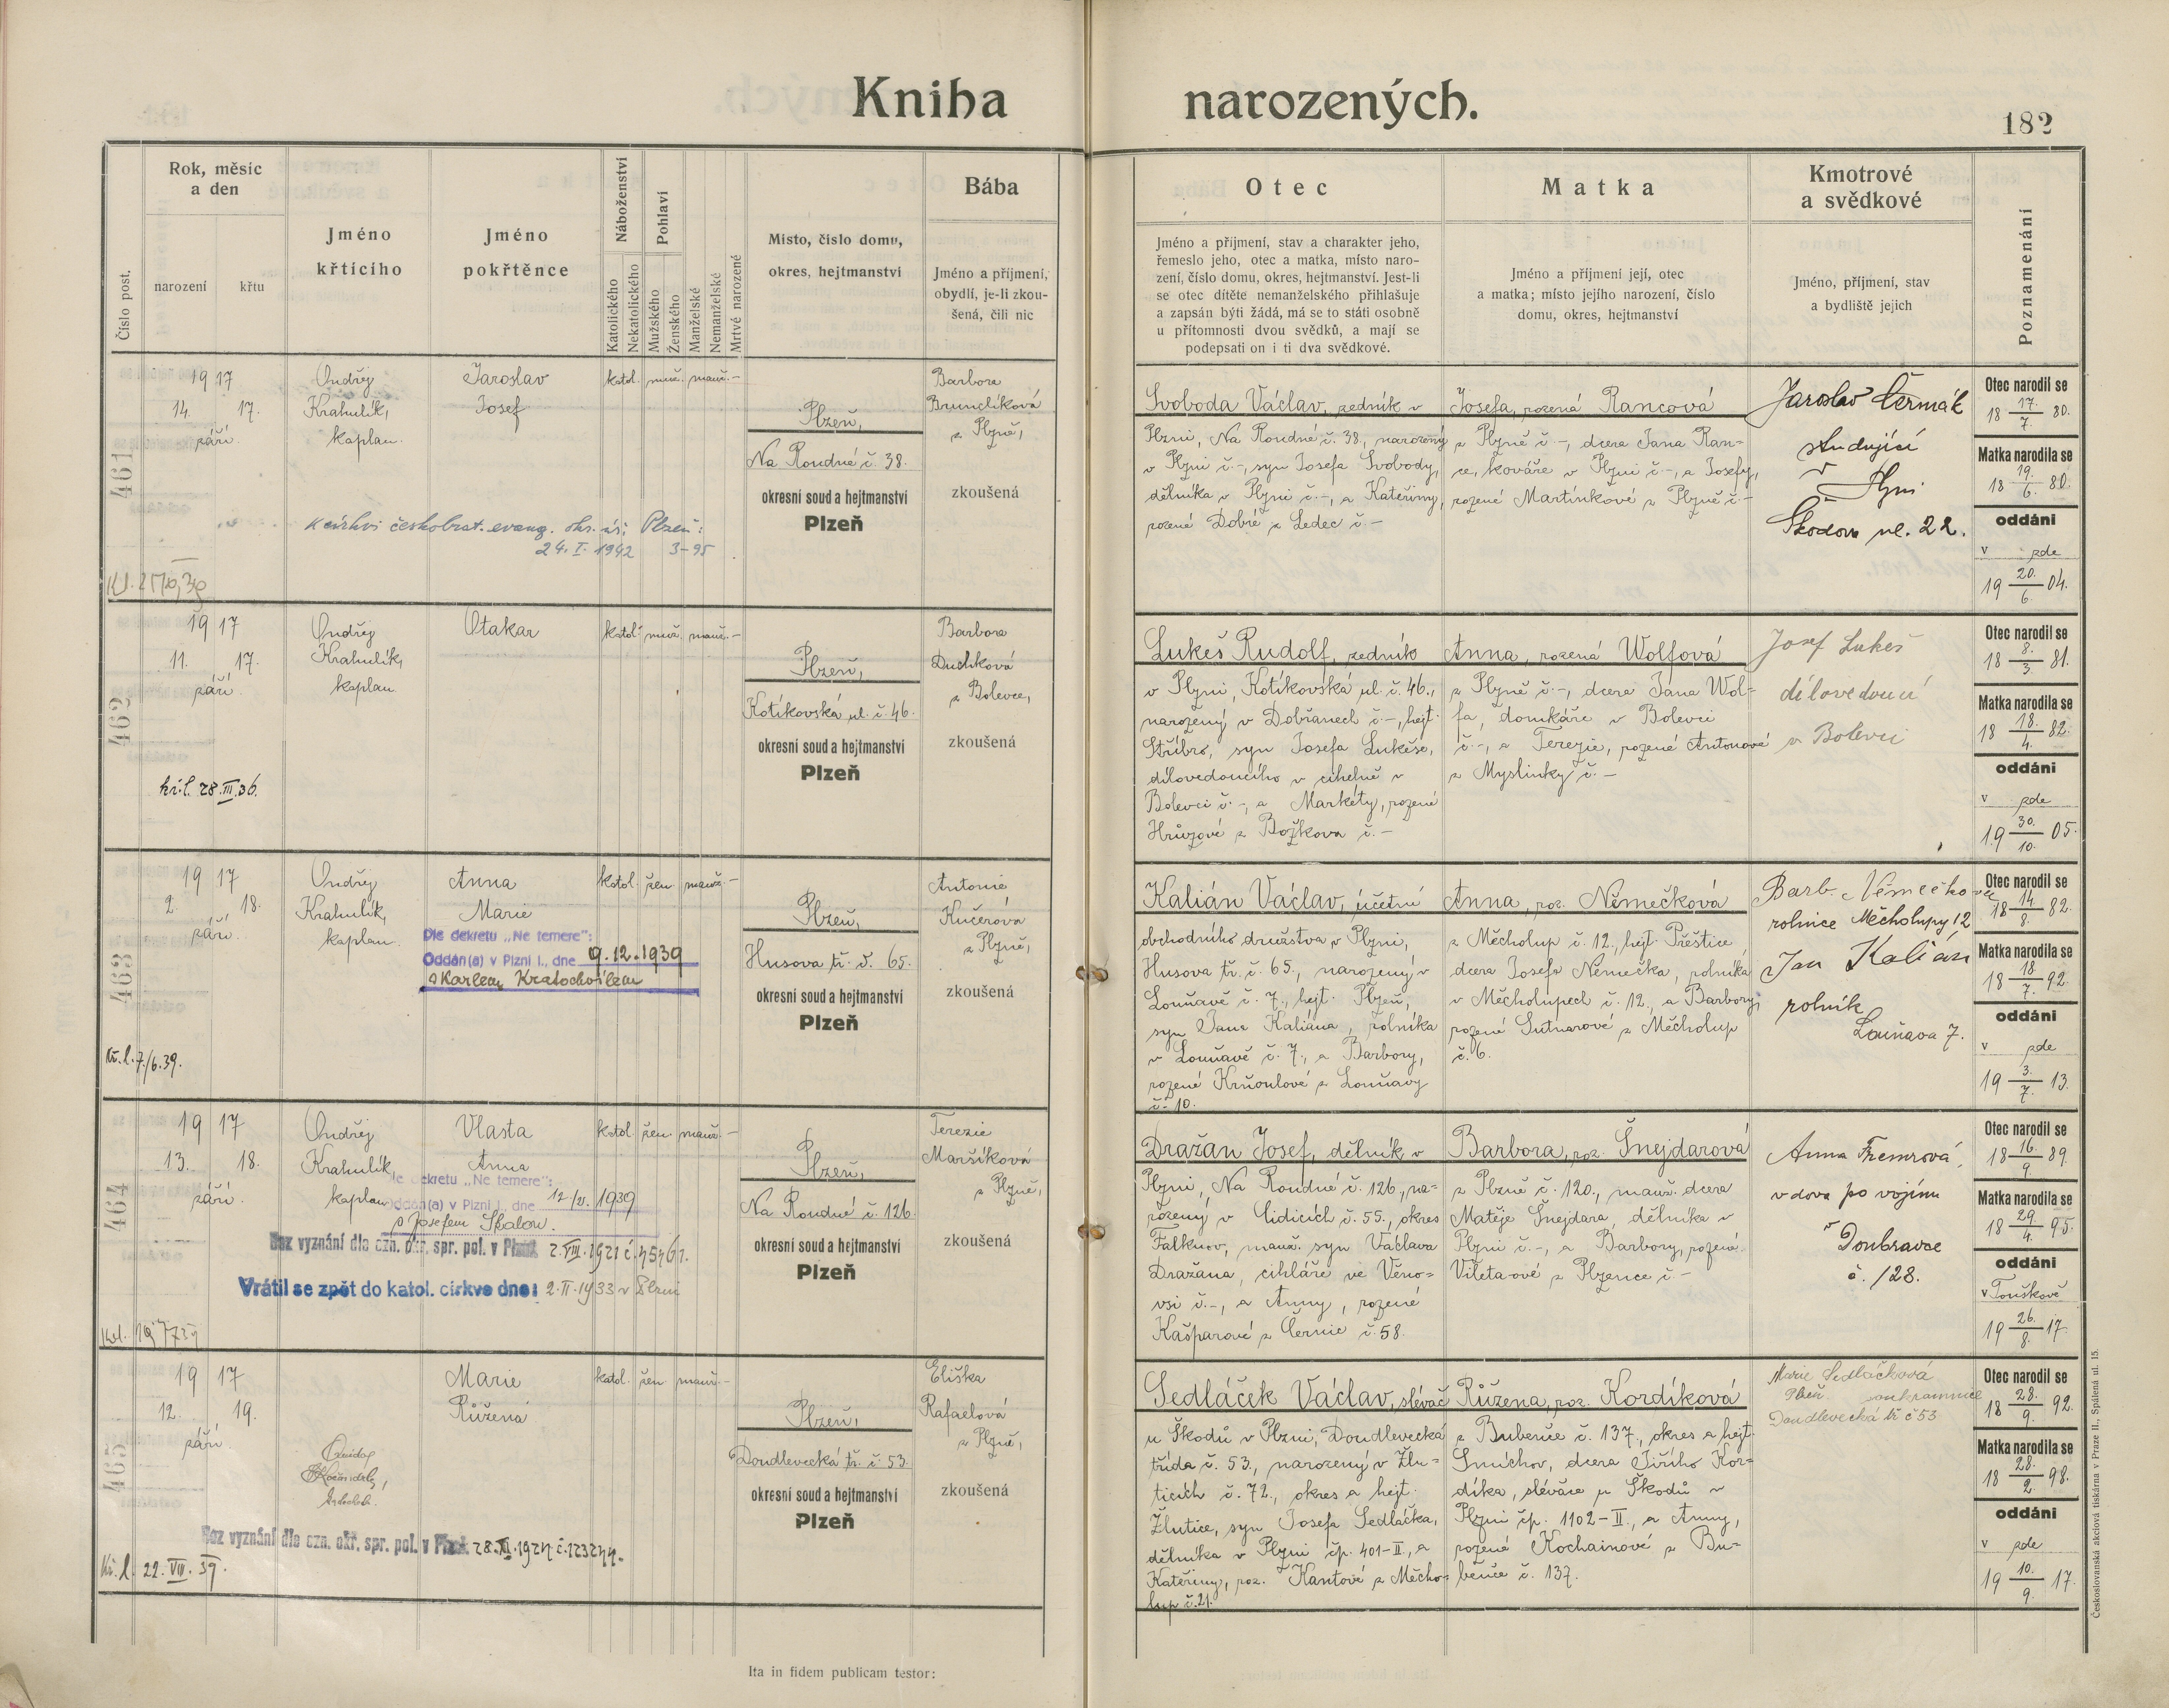 Kniha narozených.
182
Číslo post.
Rok, měsíc
a den
narození
křtu
Jméno
křtícího
Jméno
pokřtěnce
Náboženství
Katolického
Nekatolického
Pohlaví
Mužského
Ženského
Manželské
Nemanželské
Mrtvé narozené
Místo, číslo domu,
okres, hejtmanství
Bába
Jméno a příjmení,
obydlí, je-li zkou-
šená, čili nic
Otec
Jméno a příjmení, stav a charakter jeho,
řemeslo jeho, otec a matka, místo naro-
zení, číslo domu, okres, hejtmanství. Jest-li
se otec dítěte nemanželského přihlašuje
a zapsán býti žádá, má se to státi osobně
u přítomnosti dvou svědků, a mají se
podepsati on i ti dva svědkové.
Matka
Jméno a příjmení její, otec
a matka; místo jejího narození, číslo
domu, okres, hejtmanství
Kmotrové
a svědkové
Jméno, příjmení, stav
a bydliště jejich
Poznamenání
461
19 17
14. 17.
září.
Ondřej
Krahulík,
kaplan.
Jaroslav
Josef
katol. muž. manž. –
Plzeň,
Na Roudné č. 38.
okresní soud a hejtmanství
Plzeň
Barbora
Brunclíková
z Plzně,
zkoušená
k církvi českobrat. evang.
24. I. 1942 3-95
Svoboda Václav, zedník v
Plzni, Na Roudné č. 38, narozený
v Plzni č. –, syn Josefa Svobody,
dělníka v Plzni č. –, a Kateřiny,
rozené Dobré z Ledec č. –
Josefa, rozená Rancová
z Plzně č. –, dcera Jana Ran-
ce, kováře v Plzni č. –, a Josefy,
rozené Martínkové z Plzně č. –
Jaroslav Čermák
studující
v Plzni
Škodova ul. 22.
Otec narodil se
18 17./7. 80.
Matka narodila se
18 19./6. 80.
oddáni
v zde
19 20./6. 04.
462
19 17
11. 17.
září.
Ondřej
Krahulík,
kaplan
Otakar
katol. muž. manž. –
Plzeň,
Kotíkovská ul. č. 46.
okresní soud a hejtmanství
Plzeň
Barbora
Duchková
z Bolevce,
zkoušená
kř. l. 28. III. 36.
Lukeš Rudolf, zedník
v Plzni, Kotíkovská ul. č. 46.,
narozený v Dobřanech č. –, hejt.
Stříbro, syn Josefa Lukeše,
dílovedoucího v cihelně v
Bolevci č. –, a Markéty, rozené
Hrůzové z Božkova č. –
Anna, rozená Wolfová
z Plzně č. –, dcera Jana Wol-
fa, domkáře v Bolevci
č. –, a Terezie, rozené Antonové
z Myslinky č. –
Josef Lukeš
dílovedoucí
v Bolevci
Otec narodil se
18 8./3. 81.
Matka narodila se
18 18./4. 82.
oddáni
v zde
19 30./10. 05.
463
19 17
2. 18.
září.
Ondřej
Krahulík,
kaplan.
Anna
Marie
Dle dekretu „Ne temere":
Oddán(a) v Plzni I., dne 9.12.1939
s Karlem Kratochvílem
katol. žen. manž. –
Plzeň,
Husova tř. č. 65.
okresní soud a hejtmanství
Plzeň
Antonie
Kučerová
z Plzně,
zkoušená
Kř. l. 7./6. 39.
Kalián Václav, účetní
obchodního družstva v Plzni,
Husova tř. č. 65., narozený v
Louňavě č. 7., hejt. Plzeň,
syn Jana Kaliána, rolníka
v Louňavě č. 7., a Barbory,
rozené Krňoulové z Louňavy
č. 10.
Anna, roz. Němečková
z Měcholup č. 12., hejt. Přeštice,
dcera Josefa Němečka, rolníka
v Měcholupech č. 12., a Barbory,
rozené Sutnarové z Měcholup
č. 6.
Barb. Němečková
rolnice Měcholupy 12
Jan Kalián
rolník
Louňava 7.
Otec narodil se
18 14./8. 82.
Matka narodila se
18 18./7. 92.
oddáni
v zde
19 3./7. 13.
464
19 17
13. 18.
září.
Ondřej
Krahulík,
kaplan
Vlasta
Anna
Dle dekretu „Ne temere":
Oddán(a) v Plzni I., dne 12./VI. 1939
s Josefem Skalou.
Bez vyznání dle ozn. okr. spr. pol. v Plzni 2. VIII. 1921 č. 45461.
Vrátil se zpět do katol. církve dne: 2. II. 1933 v Plzni
katol. žen. manž. –
Plzeň,
Na Roudné č. 126.
okresní soud a hejtmanství
Plzeň
Terezie
Maršíková
z Plzně,
zkoušená
Dražan Josef, dělník v
Plzni, Na Roudné č. 126., na-
rozený v Lidicích č. 55., okres
Falknov, manž. syn Václava
Dražana, cihláře ve Věno-
vsi č. –, a Anny, rozené
Kašparové z Černic č. 58.
Barbora, roz. Šnejdarová
z Plzně č. 120., manž. dcera
Matěje Šnejdara, dělníka v
Plzni č. –, a Barbory, rozené
Viletaové z Plzence č. –
Anna Fremrová,
vdova po vojínu
v Doubravce
č. 128.
Otec narodil se
18 16./9. 89.
Matka narodila se
18 29./4. 95.
oddáni
v Touškově
19 26./8. 17.
465
19 17
12. 19.
září.
Marie
Růžena
Bez vyznání dle ozn. okr. spr. pol. v Plzni 28. XI. 1924 č. 123244.
Kř. l. 22. VIII. 39.
katol. žen. manž. –
Plzeň,
Doudlevecká tř. č. 53.
okresní soud a hejtmanství
Plzeň
Eliška
Rafaelová
z Plzně,
zkoušená
Sedláček Václav, slévač
u Škodů v Plzni, Doudlevecká
třída č. 53., narozený v Žlu-
ticích č. 72., okres a hejt.
Žlutice, syn Josefa Sedláčka,
dělníka v Plzni čp. 401-II., a
Kateřiny, roz. Kantové z Měcho-
lup č. 21.
Růžena, roz. Kordíková
z Bubenče č. 137., okres a hejt.
Smíchov, dcera Jiřího Kor-
díka, slévače u Škodů v
Plzni čp. 1102-II., a Anny,
rozené Kochainové z Bu-
benče č. 137.
Marie Sedláčková
Plzeň soukromnice
Doudlevecká tř č 53
Otec narodil se
18 28./9. 92.
Matka narodila se
18 28./2. 98.
oddáni
v zde
19 10./9. 17.
Ita in fidem publicam testor:
Českoslovanská akciová tiskárna v Praze II., Spálená ul. 15.